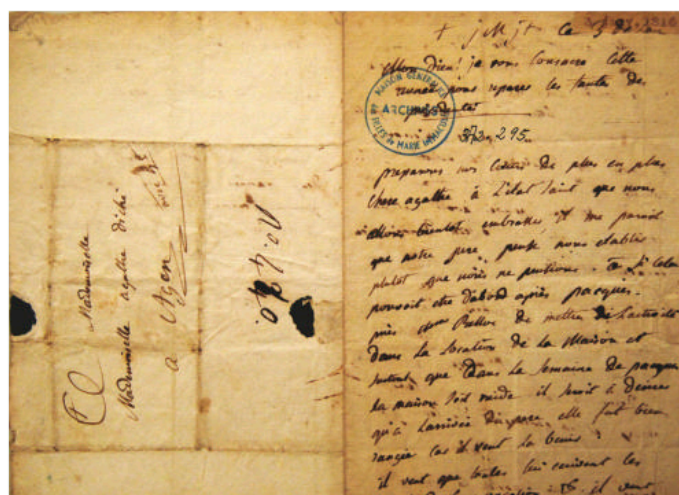 Mademoiselle
Mademoiselle agathe diché
a Agen
No. 440.
+ jMjt ce 3
Mon Dieu! je vous Consacre cette
pour reparer les fautes des
MAISON GENERALE
ARCHIVES
FILLES DE MARIE IMMACULEE
373. 295.
preparons nos Cœurs de plus en plus
chere agathe à L'etat saint que nous
allons bientot embrasser, il me paroit
que notre pere pense nous etablir
plutot que nous ne pensions.
pouroit etre d'abord après pacques.
de mettre de L'activité
dans La Location de La Maison et
surtout que dans La Semaine de pacques
La maison soit vuide il seroit à desirer
qu'à L'arrivée du pere elle fut bien
rangée car il veut La benir.
il veut que toutes lui ecrivent les
il veut